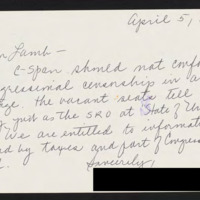 April 5,
Lamb-
C-Span should not conf
gressional censorship in a
age. The vacant seats tell
just as the SRO at State of Un
ns are entitled to informat
d by taxes and part of Congres
Sincerely,